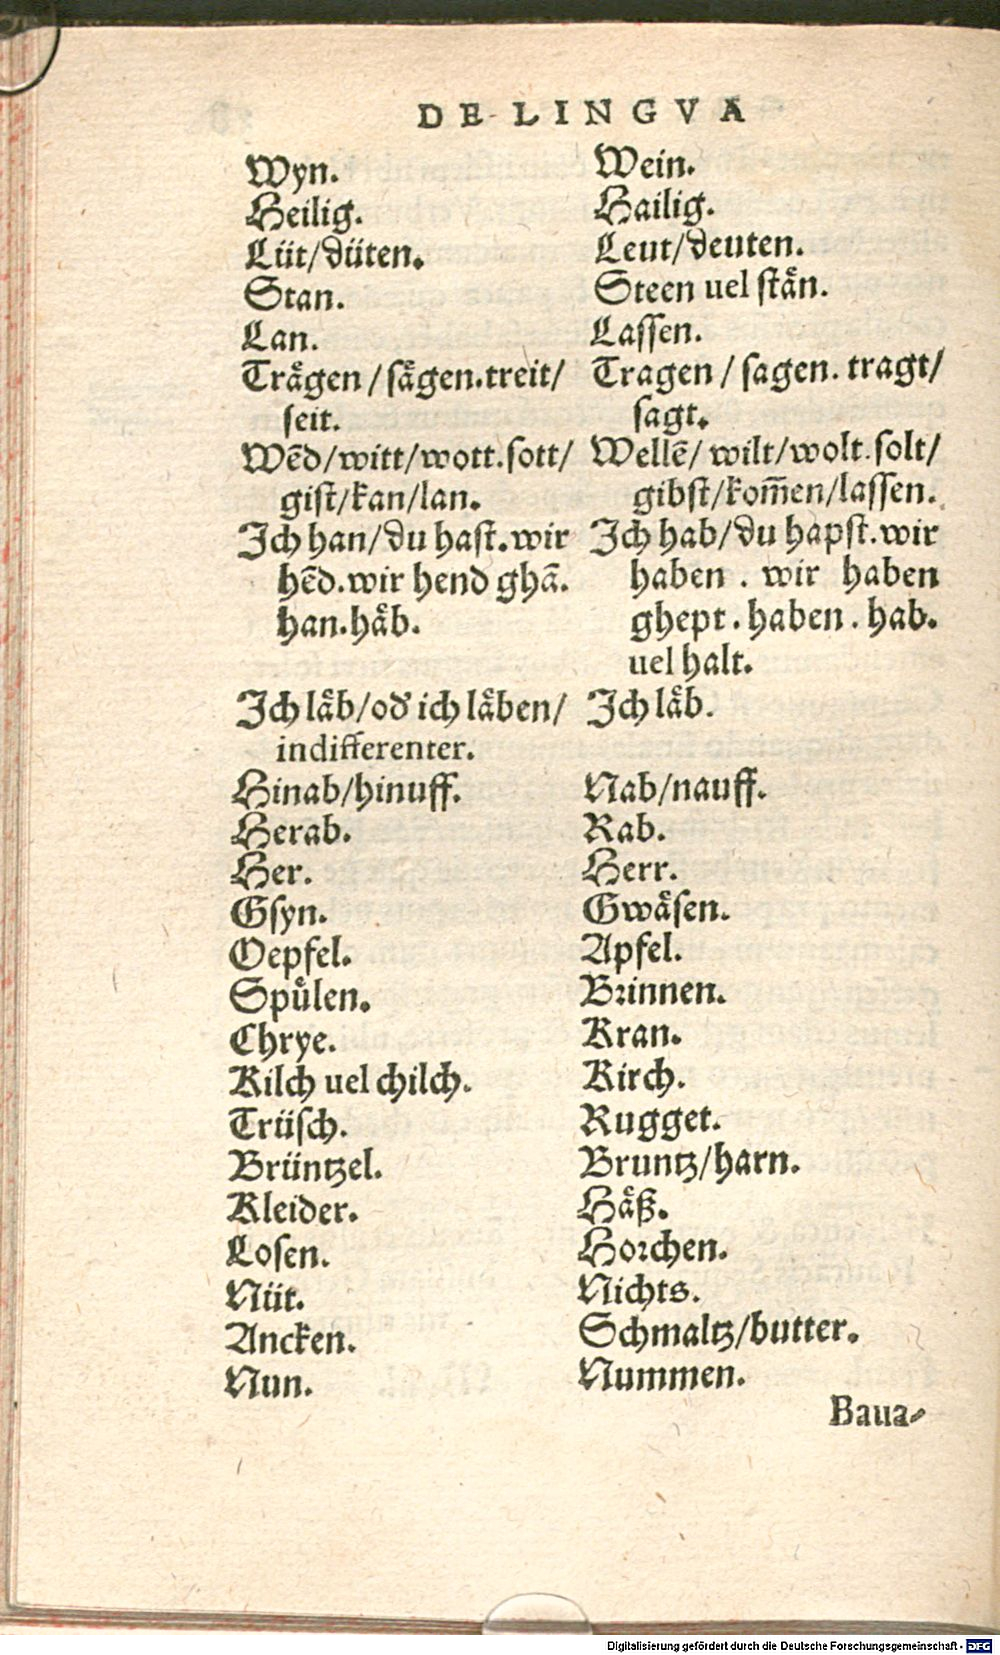 DE LINGVA
Wyn. Wein.
Heilig. Hailig.
Lüt/düten. Leut/deuten.
Stan. Steen uel stån.
Lan. Lassen.
Trågen / sågen.treit/ Tragen / sagen. tragt/
seit. sagt.
Wẽd/witt/wott.sott/ Wellẽ/ wilt/wolt.solt/
gist/kan/lan. gibst/kom̃en/lassen.
Ich han/du hast.wir Ich hab/du hapst.wir
hẽd.wir hend ghã. haben . wir haben
han.håb. ghept . haben . hab.
uel halt.
Ich låb/od' ich låben/ Ich låb.
indifferenter.
Hinab/hinuff. Nab/nauff.
Herab. Rab.
Her. Herr.
Gsyn. Gwåsen.
Oepfel. Apfel.
Spůlen. Brinnen.
Chrye. Kran.
Kilch uel chilch. Kirch.
Trüsch. Rugget.
Brüntzel. Bruntz/harn.
Kleider. Håß.
Losen. Horchen.
Nüt. Nichts.
Ancken. Schmaltz/butter.
Nun. Nummen.
Baua-
Digitalisierung gefördert durch die Deutsche Forschungsgemeinschaft - DFG